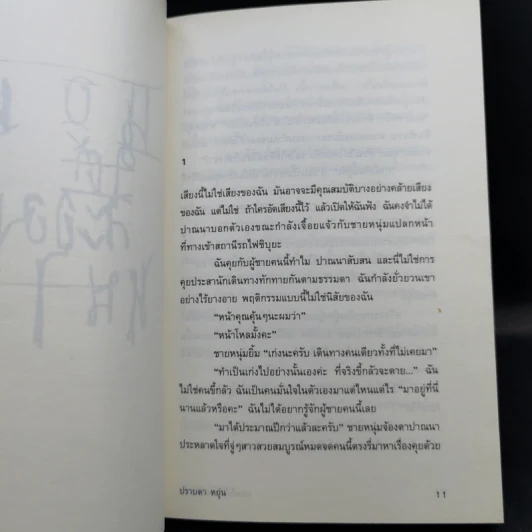 1
เสียงนี้ไม่ใช่เสียงของฉัน มันอาจจะมีคุณสมบัติบางอย่างคล้ายเสียง
ของฉัน แต่ไม่ใช่ ถ้าใครอัดเสียงนี้ไว้ แล้วเปิดให้ฉันฟัง ฉันคงจำไม่ได้
ปาณนาบอกตัวเองขณะกำลังเจื้อยแจ้วกับชายหนุ่มแปลกหน้า
ที่ทางเข้าสถานีรถไฟชิบุยะ
ฉันคุยกับผู้ชายคนนี้ทำไม ปาณนาสับสน และนี่ไม่ใช่การ
คุยประสานักเดินทางทักทายกันตามธรรมดา ฉันกำลังยั่วยวนเขา
อย่างไร้ยางอาย พฤติกรรมแบบนี้ไม่ใช่นิสัยของฉัน
“หน้าคุณคุ้นๆนะผมว่า”
“หน้าโหลมั้งคะ”
ชายหนุ่มยิ้ม “เก่งนะครับ เดินทางคนเดียวทั้งที่ไม่เคยมา”
“ทำเป็นเก่งไปอย่างนั้นเองค่ะ ที่จริงขี้กลัวจะตาย...” ฉัน
ไม่ใช่คนขี้กลัว ฉันเป็นคนมั่นใจในตัวเองมาแต่ไหนแต่ไร “มาอยู่ที่นี่
นานแล้วหรือคะ” ฉันไม่ได้อยากรู้จักผู้ชายคนนี้เลย
“มาได้ประมาณปีกว่าแล้วละครับ” ชายหนุ่มจ้องตาปาณนา
ประหลาดใจที่จู่ๆสาวสวยสมบูรณ์หมดจดคนนี้ตรงรี่มาหาเรื่องคุยด้วย
ปราบดา หยุ่น
11